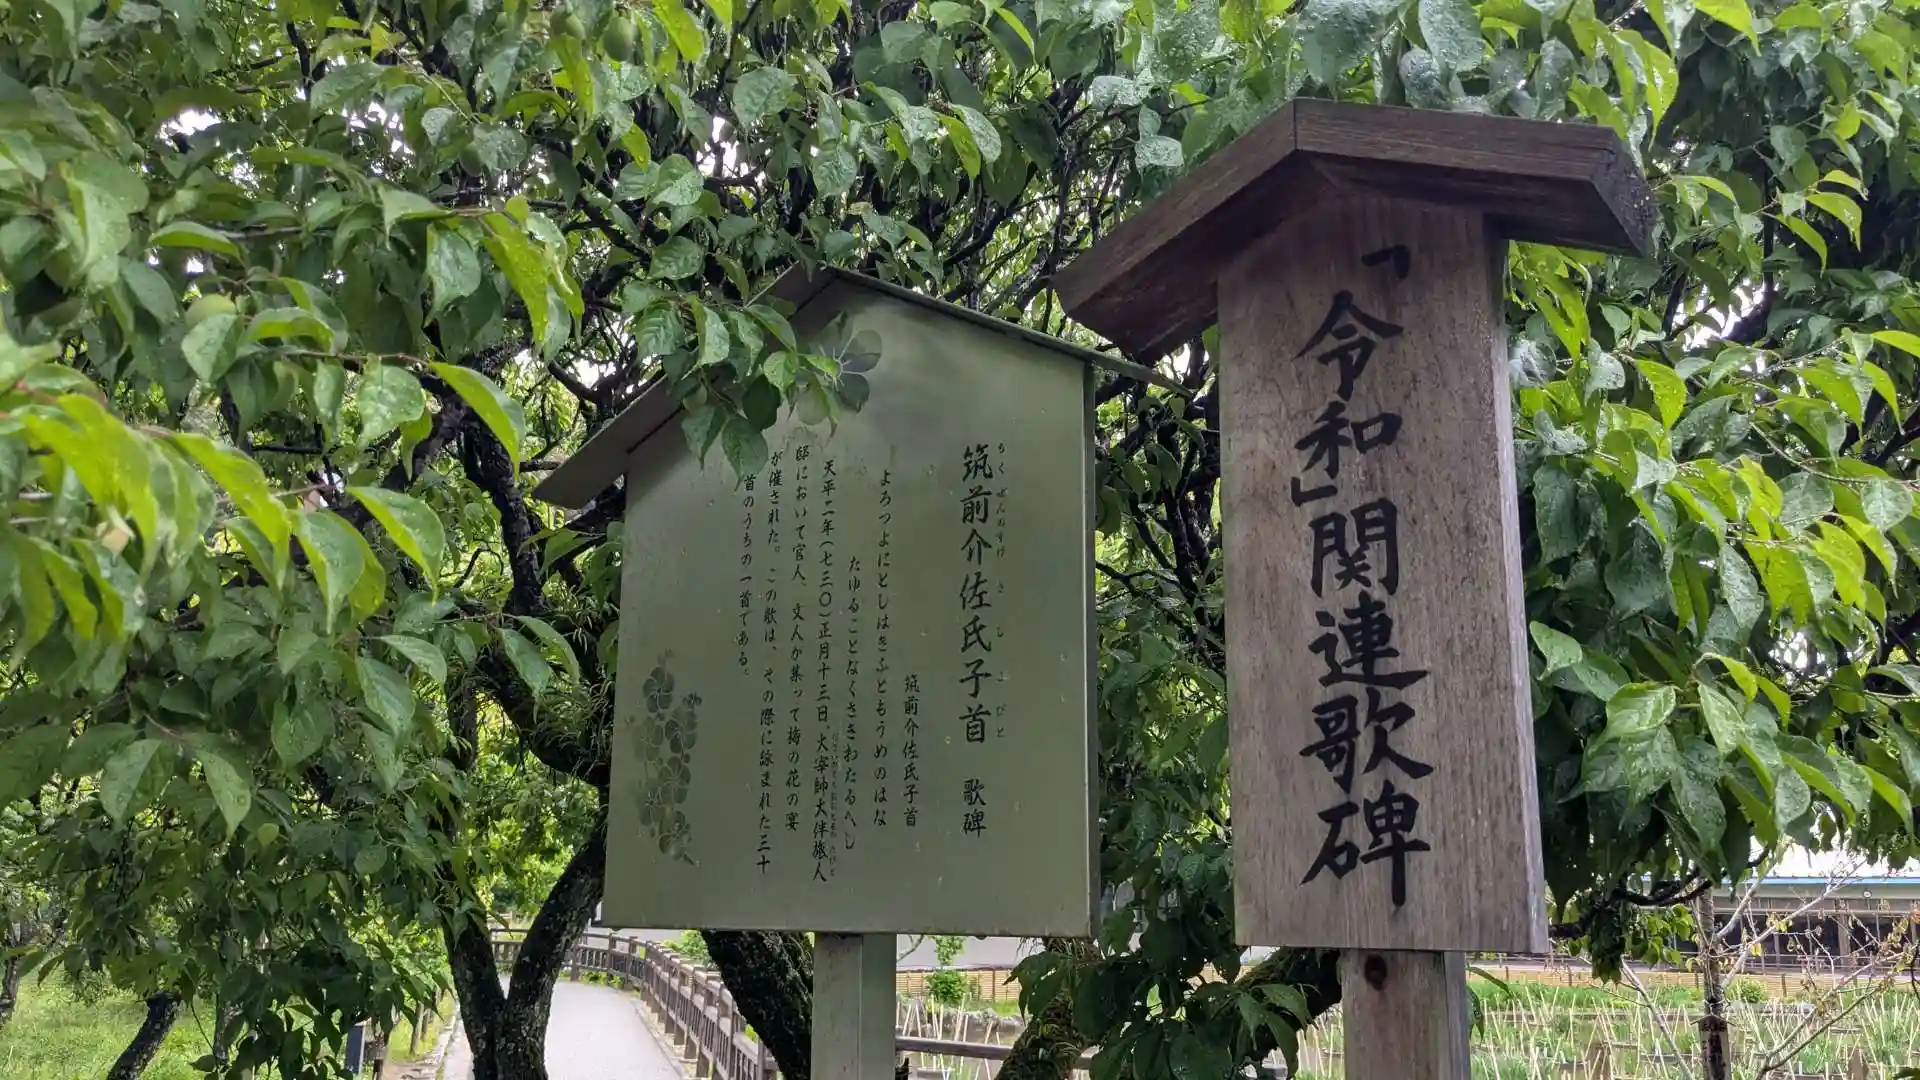 「令和」関連歌碑
筑前介佐氏子首　歌碑
ちくぜんのすけ　さ　し　こ　びと
筑前介佐氏子首
よろつよにとしはきふともうめのはな
たゆることなくさきわたるへし
天平二年（七三〇）正月十三日、大宰帥大伴旅人
邸において官人、文人か集って梅の花の宴
が催された。この歌は、その際に詠まれた三十
首のうちの一首である。